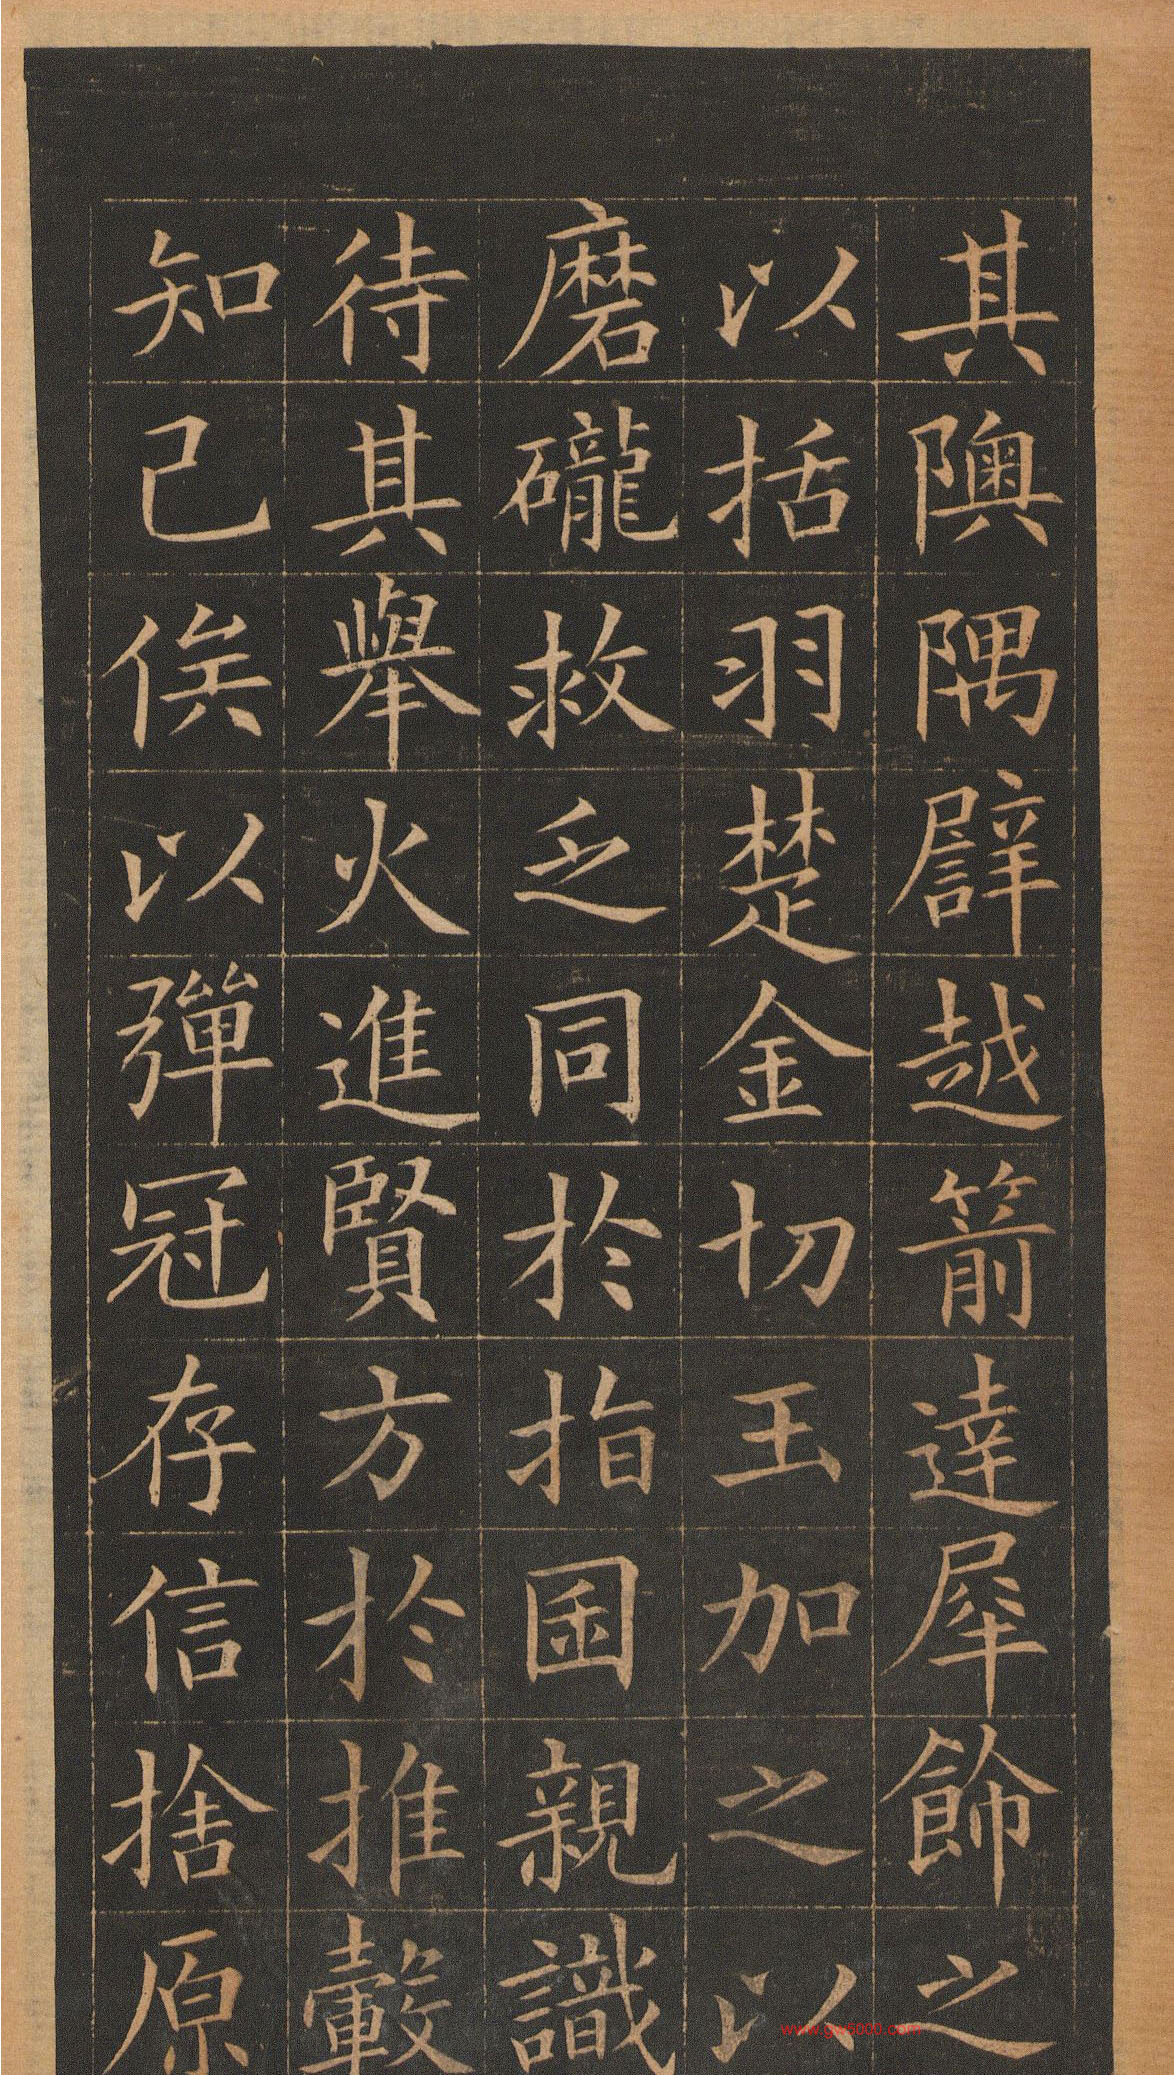 其隩隅譬越箭達犀飾之
以括羽楚金切玉加之以
磨礲救乏同於指囷親識
待其舉火進賢方於推轂
知己俟以彈冠存信捨原
www.gw5000.com